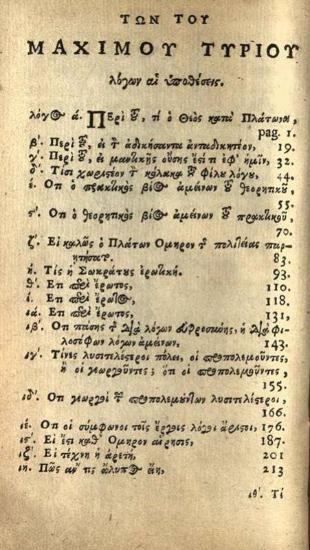 ΤΩΝ ΤΟΥ
ΜΑΞΙΜΟΥ ΤΥΡΙΟΥ
λόγων αἱ ὑποθέσεις.
λόγος ά. Περὶ τοῦ, τί ὁ Θεὸς κατὰ Πλάτωνα,
pag. 1.
β΄. Περὶ τοῦ, εἰ τὸν ἀδικήσαντα ἀνταδικητέον, 19.
γ΄. Περὶ τοῦ, εἰ μαντικῆς οὔσης ἔστι τι ἐφ' ἡμῖν, 32.
δ΄. Τίσι χωριστέον τὸν κόλακα τοῦ φίλου λόγος, 44.
έ. Ὅτι ὁ πρακτικὸς βίος ἀμείνων τοῦ θεωρητικοῦ,
55.
ς΄. Ὅτι ὁ θεωρητικὸς βίος ἀμείνων τοῦ πρακτικοῦ,
70.
ζ΄. Εἰ καλῶς ὁ Πλάτων Ὅμηρον τῆς πολιτείας παρῃ-
τήσατο. 83.
ή. Τίς ἡ Σωκράτους ἐρωτική. 93.
θ΄. Ἔτι περὶ ἔρωτος, 110.
ί. Ἔτι περὶ ἔρωτος, 118.
ιά. Ἔτι περὶ ἔρωτος, 131,
ιβ΄. Ὅτι πάσης τῆς διὰ λόγων εὐφροσύνης, ἡ διὰ φι-
λοσόφων λόγων ἀμείνων. 143.
ιγ΄. Τίνες λυσιτελέστεροι πόλει, οἱ προπολεμοῦντες,
ἢ οἱ γεωργοῦντες; ὅτι οἱ προπολεμοῦντες,
155.
ιδ΄. Ὅτι γεωργοὶ τῶν προπολεμούντων λυσιτελέστεροι,
166.
ιέ. Ὅτι οἱ σύμφωνοι τοῖς ἔργοις λόγοι ἄριστοι, 176.
ις΄. Εἰ ἔστι καθ' Ὅμηρον αἵρεσις, 187.
ιζ΄. Εἰ τέχνη ἡ ἀρετή, 201
ιη. Πῶς ἄν τις ἄλυπος εἴη, 213
ιθ΄. Τί